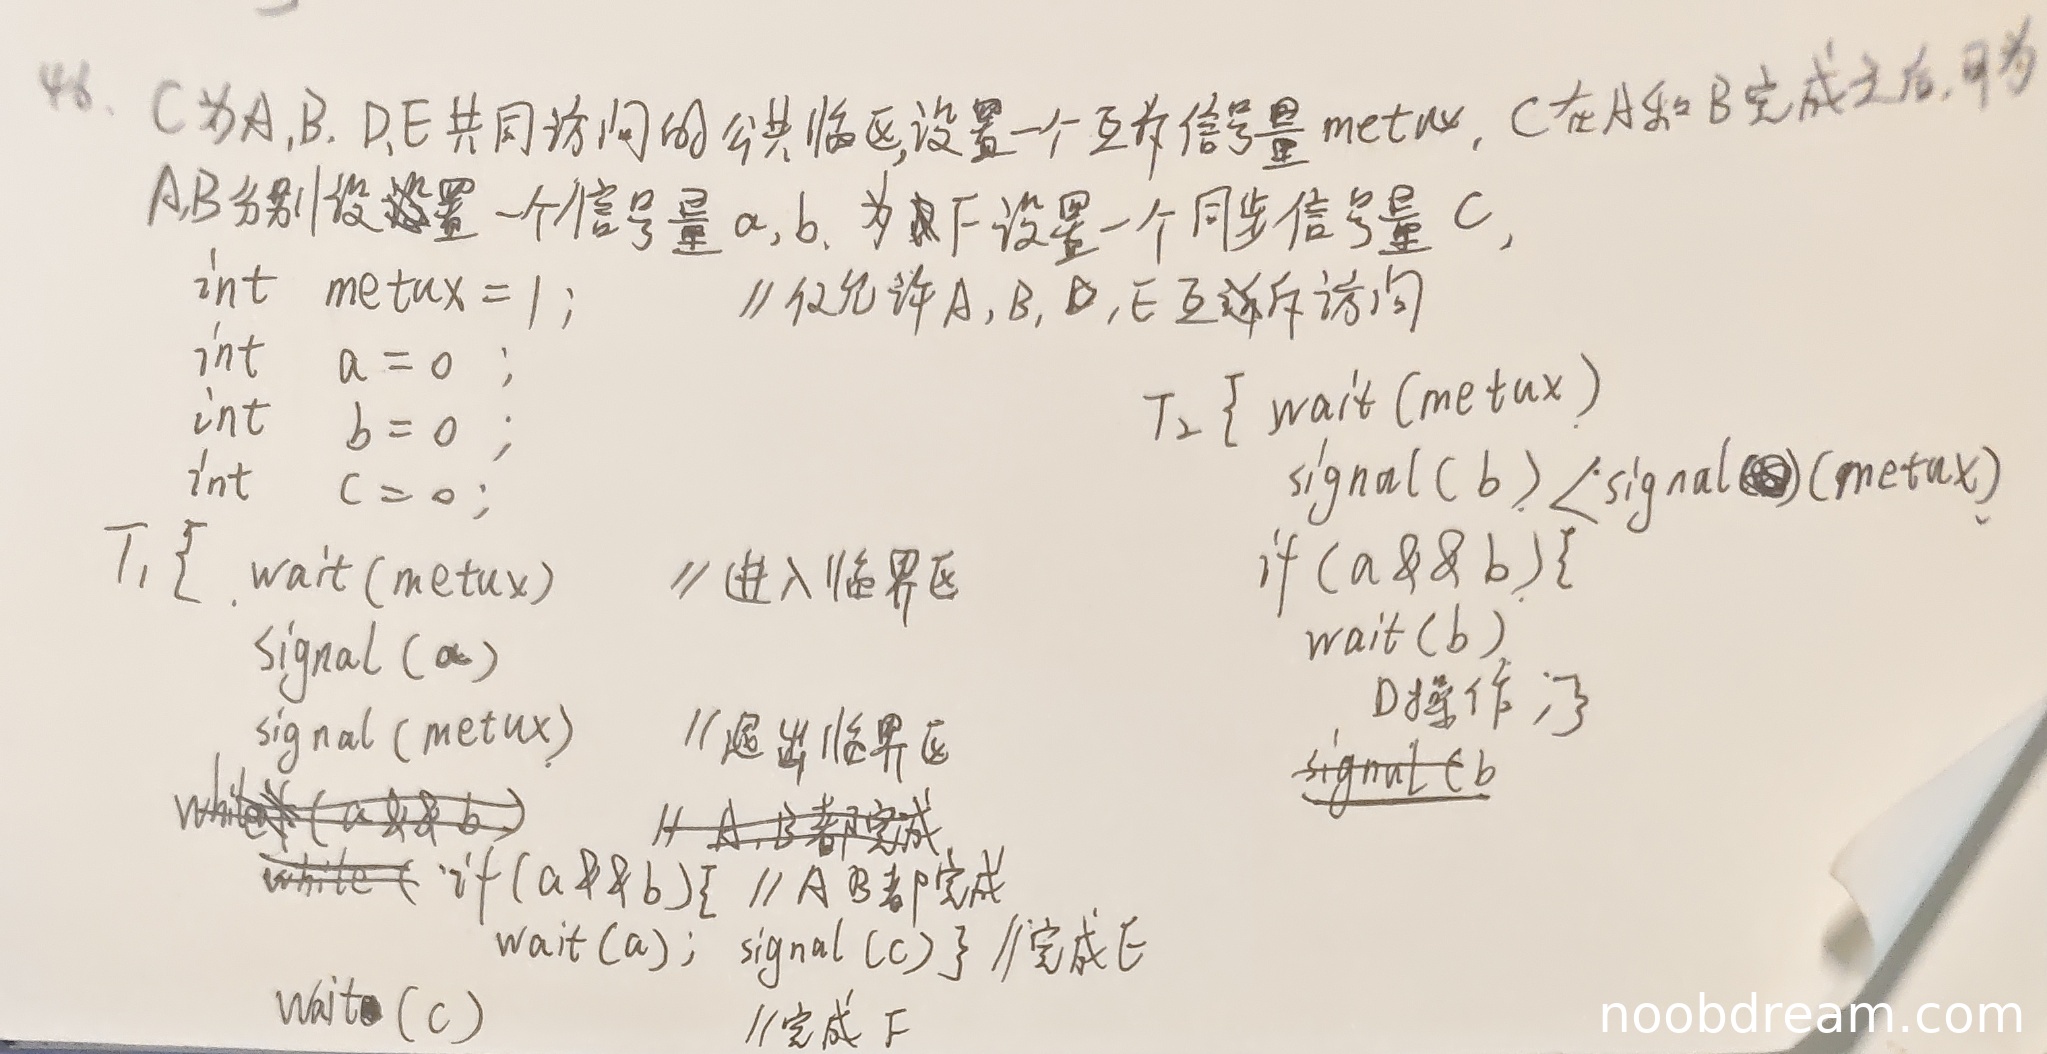 46. C为A,B,D,E共同访问的公共临区,设置一个互斥信号量metux,C在A和B完成之后,可为
A,B分别设置一个信号量a,b.为F设置一个同步信号量C,
int metux=1; //仅允许A,B,D,E互斥访问
int a=0;
int b=0;
int c=0;
T₁{ wait(metux) //进入临界区
signal(a)
signal(metux) //退出临界区
while(a&&b) //A,B都完成
while( if(a&&b){ //A B都完成
wait(a); signal(c)} //完成E
wait(c) //完成F
T₂{ wait(metux)
signal(b) <signal(metux)
if(a&&b){
wait(b)
D操作;}
signal(b
noobdream.com